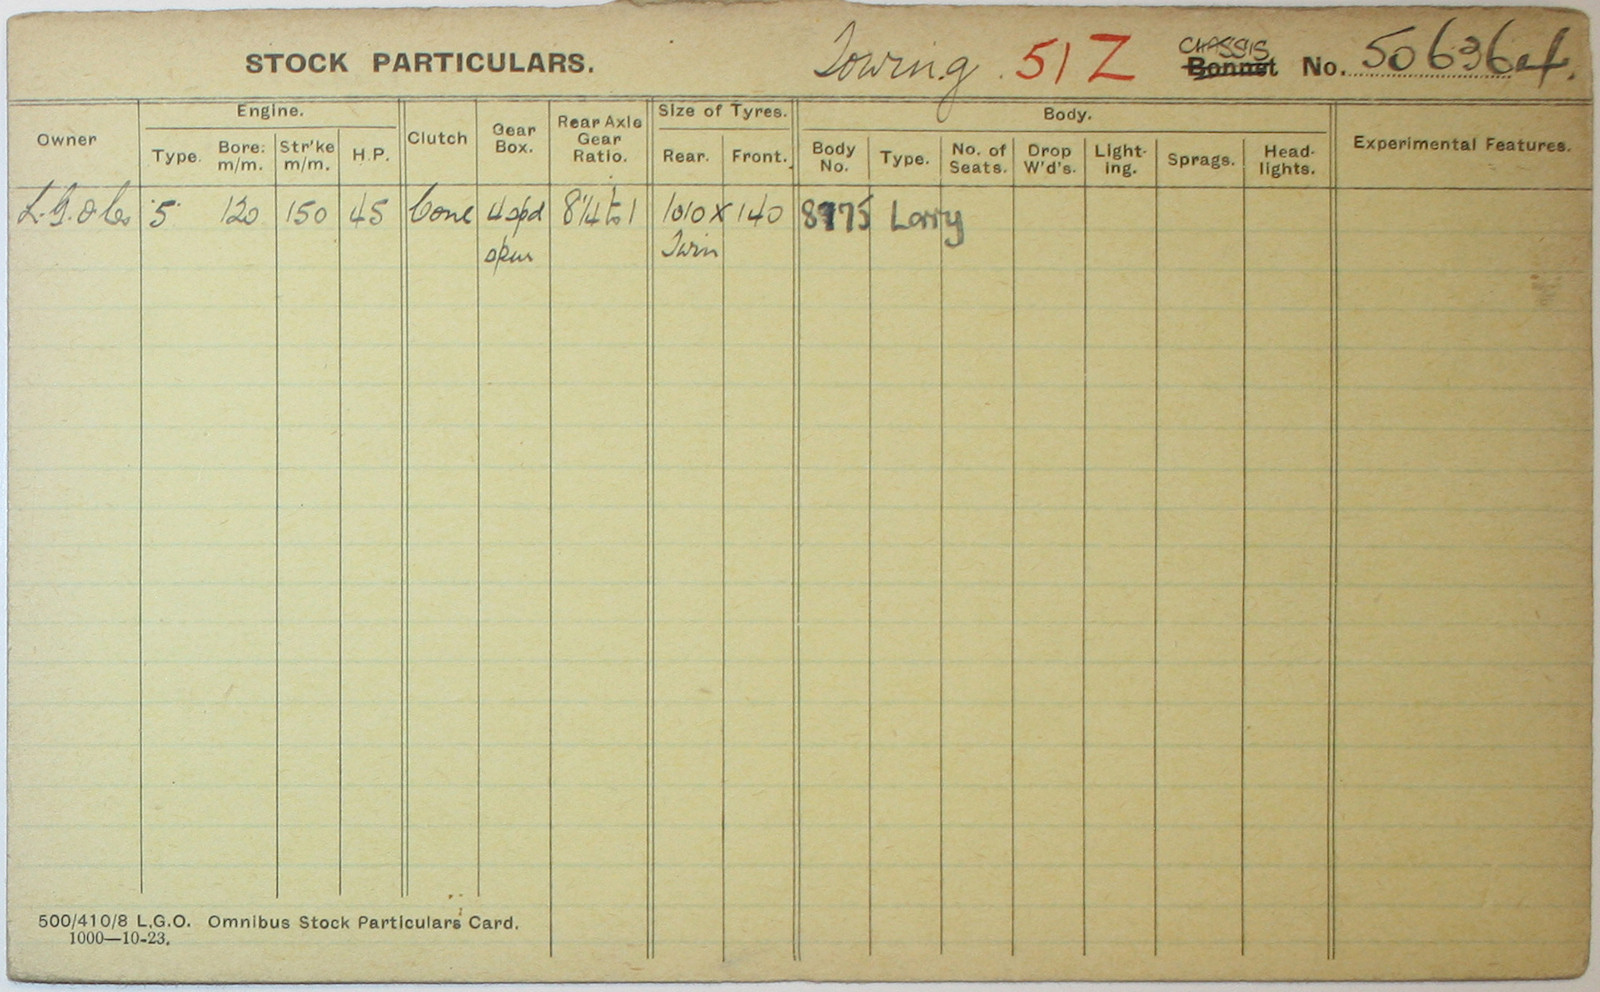 STOCK PARTICULARS. Towing. 51Z CHASSIS Bonnet No. 50636
Owner Engine. Clutch Gear Box. Rear Axle Gear Ratio. Size of Tyres. Body. Experimental Features.
Type. Bore: m/m. Str'ke m/m. H.P. Rear. Front. Body No. Type. No. of Seats. Drop W'd's. Light-ing. Sprags. Head-lights.
L.G.O Co. 5 120 150 45 Cone 4 spd 8¼ to 1 1010 x 140 8975 Lorry
spur Twin
500/410/8 L.G.O. Omnibus Stock Particulars Card.
1000—10-23.